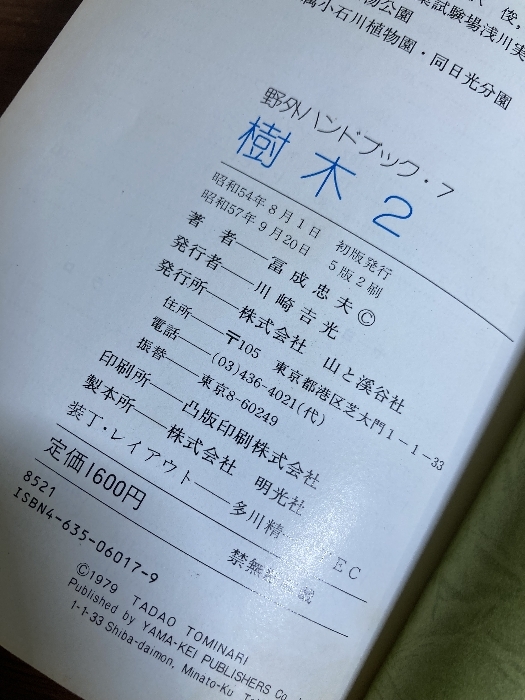 俊,
物公園
試験場浅川実
属小石川植物園・同日光分園
野外ハンドブック・7
樹木2
昭和54年8月1日 初版発行
昭和57年9月20日 5版2刷
著者——冨成忠夫©
発行者——川崎吉光
発行所——株式会社 山と溪谷社
住所——〒105 東京都港区芝大門1-1-33
電話——(03)436-4021(代)
振替——東京8-60249
印刷所——凸版印刷株式会社
製本所——株式会社 明光社
装丁・レイアウト——多川精 EC
定価1600円
禁無
8521
ISBN4-635-06017-9
©1979 TADAO TOMINARI
Published by YAMA-KEI PUBLISHERS Co
1-1-33 Shiba-daimon, Minato-Ku